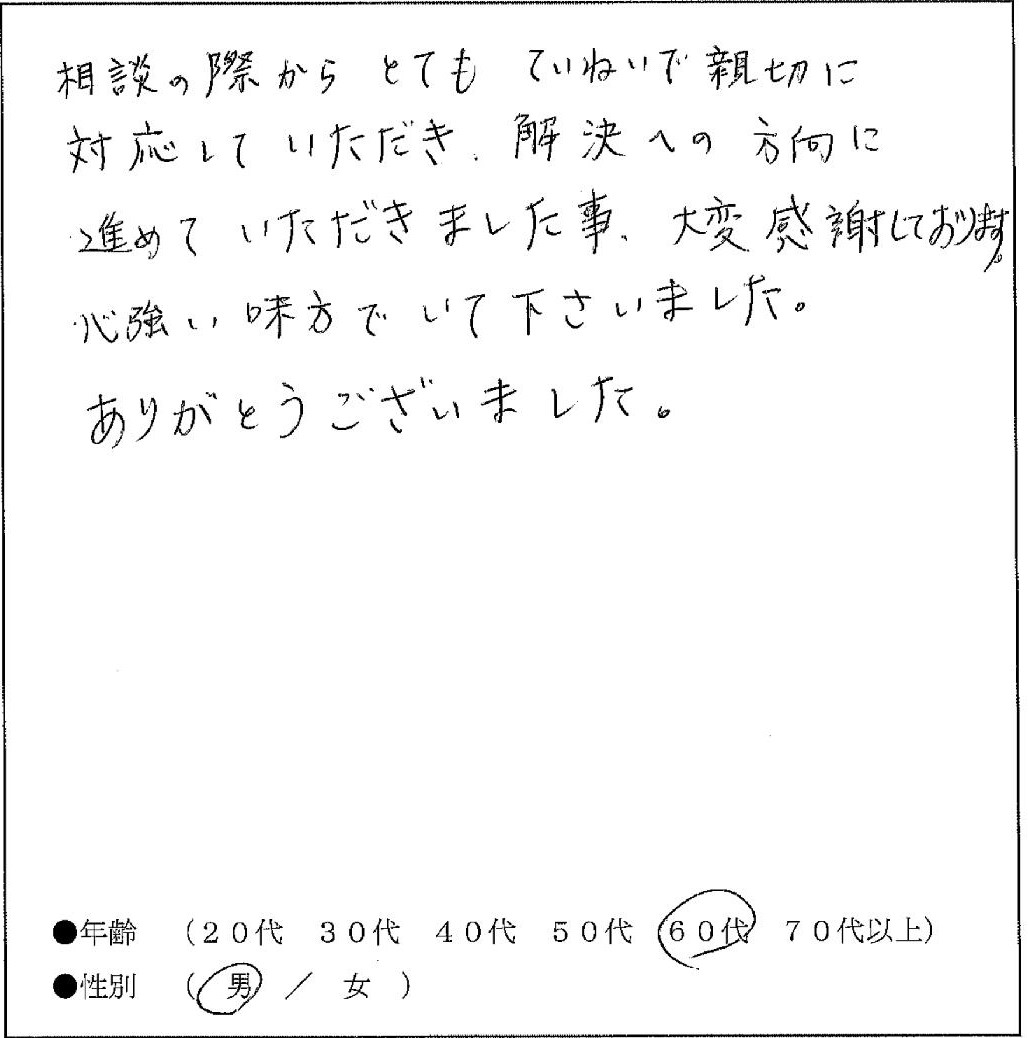 相談の際から とても ていねいで親切に
対応して いただき、解決への 方向に
進めて いただきました事、大変感謝しております。
心強い味方で いて下さいました。
ありがとうございました。
●年齢 （２０代 ３０代 ４０代 ５０代 ６０代 ７０代以上）
●性別 （ 男 ／ 女 ）